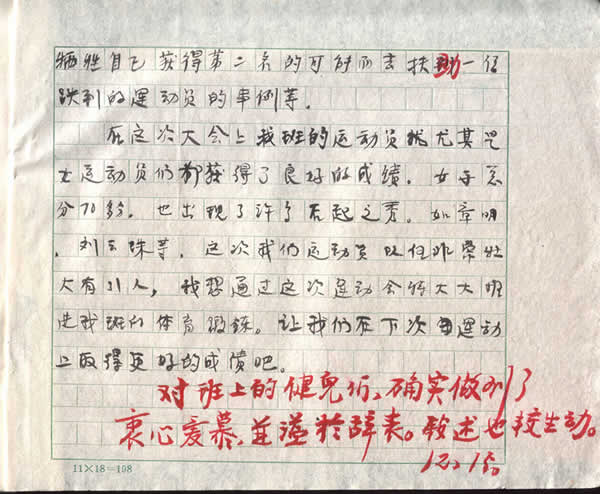 牺牲自己获得第二名的可能而去扶助一位
跌倒的运动员的事例等。
在这次大会上我班的运动员就尤其是
女运动员们都获得了良好的成绩。女子总
分70多分。也出现了许多后起之秀。如章明
、刘云珠等。这次我们运动员队伍非常壮
大有几人，我想通过这次运动会将大大推
进我班的体育锻炼。让我们在下次的运动
上取得更好的成绩吧。
对班上的健儿们，确实做到了
衷心爱慕，并溢于辞表。叙述也较生动。
12.15
11×18=198